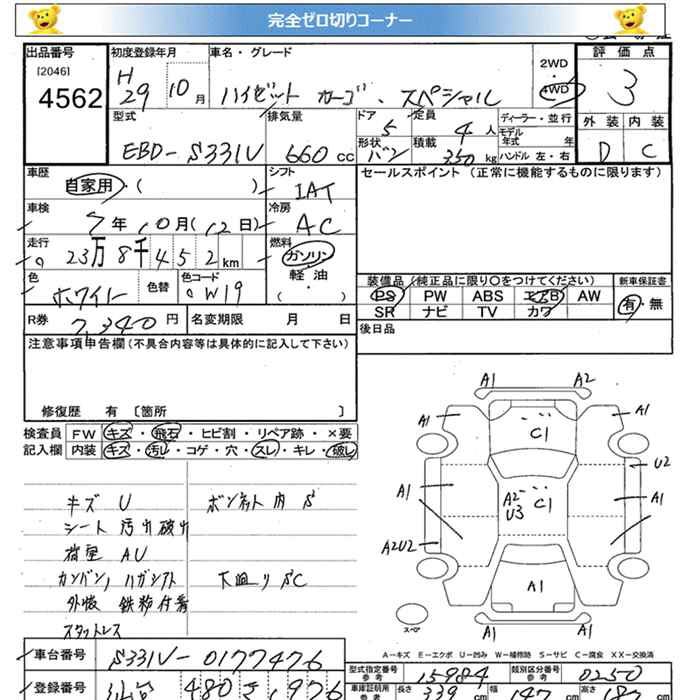 完全ゼロ切りコーナー
出品番号 初度登録年月 車名・グレード 2WD 評価点
[2046] 4562 H29 10月 ハイゼット カーゴ・スペシャル ・4WD 3
型式 排気量 ドア 定員 ディーラー・並行 外装 内装
EBD-S331V 660cc 5 4人 モデル年式 年 D C
形状 バン 積載 350kg ハンドル 左・右
車歴 シフト セールスポイント(正常に機能するものに限ります)
自家用・( ) IAT
車検 7年10月(12日) 冷房 AC
走行 23万8千452km 燃料 ガソリン
軽油
( ・ )
色 ホワイト 色替 色コード W19
装備品(純正品に限り〇をつけてください) 新車保証書
PS PW ABS エアB AW 有・無
SR ナビ TV カワ
R券 円 名変期限 月 日
後日品
注意事項申告欄(不具合内容等は具体的に記入して下さい)
修復歴 有 〔箇所 〕
検査員 FW キズ・飛石・ヒビ割・リペア跡・×要
記入欄 内装 キズ・汚レ・コゲ・穴・スレ・キレ・破レ
キズ U ボンネット内 S
シート 汚れ破れ
荷室 AU
カンバン ハガシアト 下廻り SC
外板 鉄粉付着
スタットレス
A1 A2
A1 C1 A1
U2
A1 A2 U3 C1 A1
A2U2
A1
スペア
A-キズ E-エクボ U-凹み W-補修跡 S-サビ C-腐食 XX-交換済
車台番号 S331V-0177476
型式指定番号 参考 15984 類別区分番号 参考 0250
登録番号 仙台 480 976
車庫証明用 参考 長さ 339cm 幅 147cm 高さ